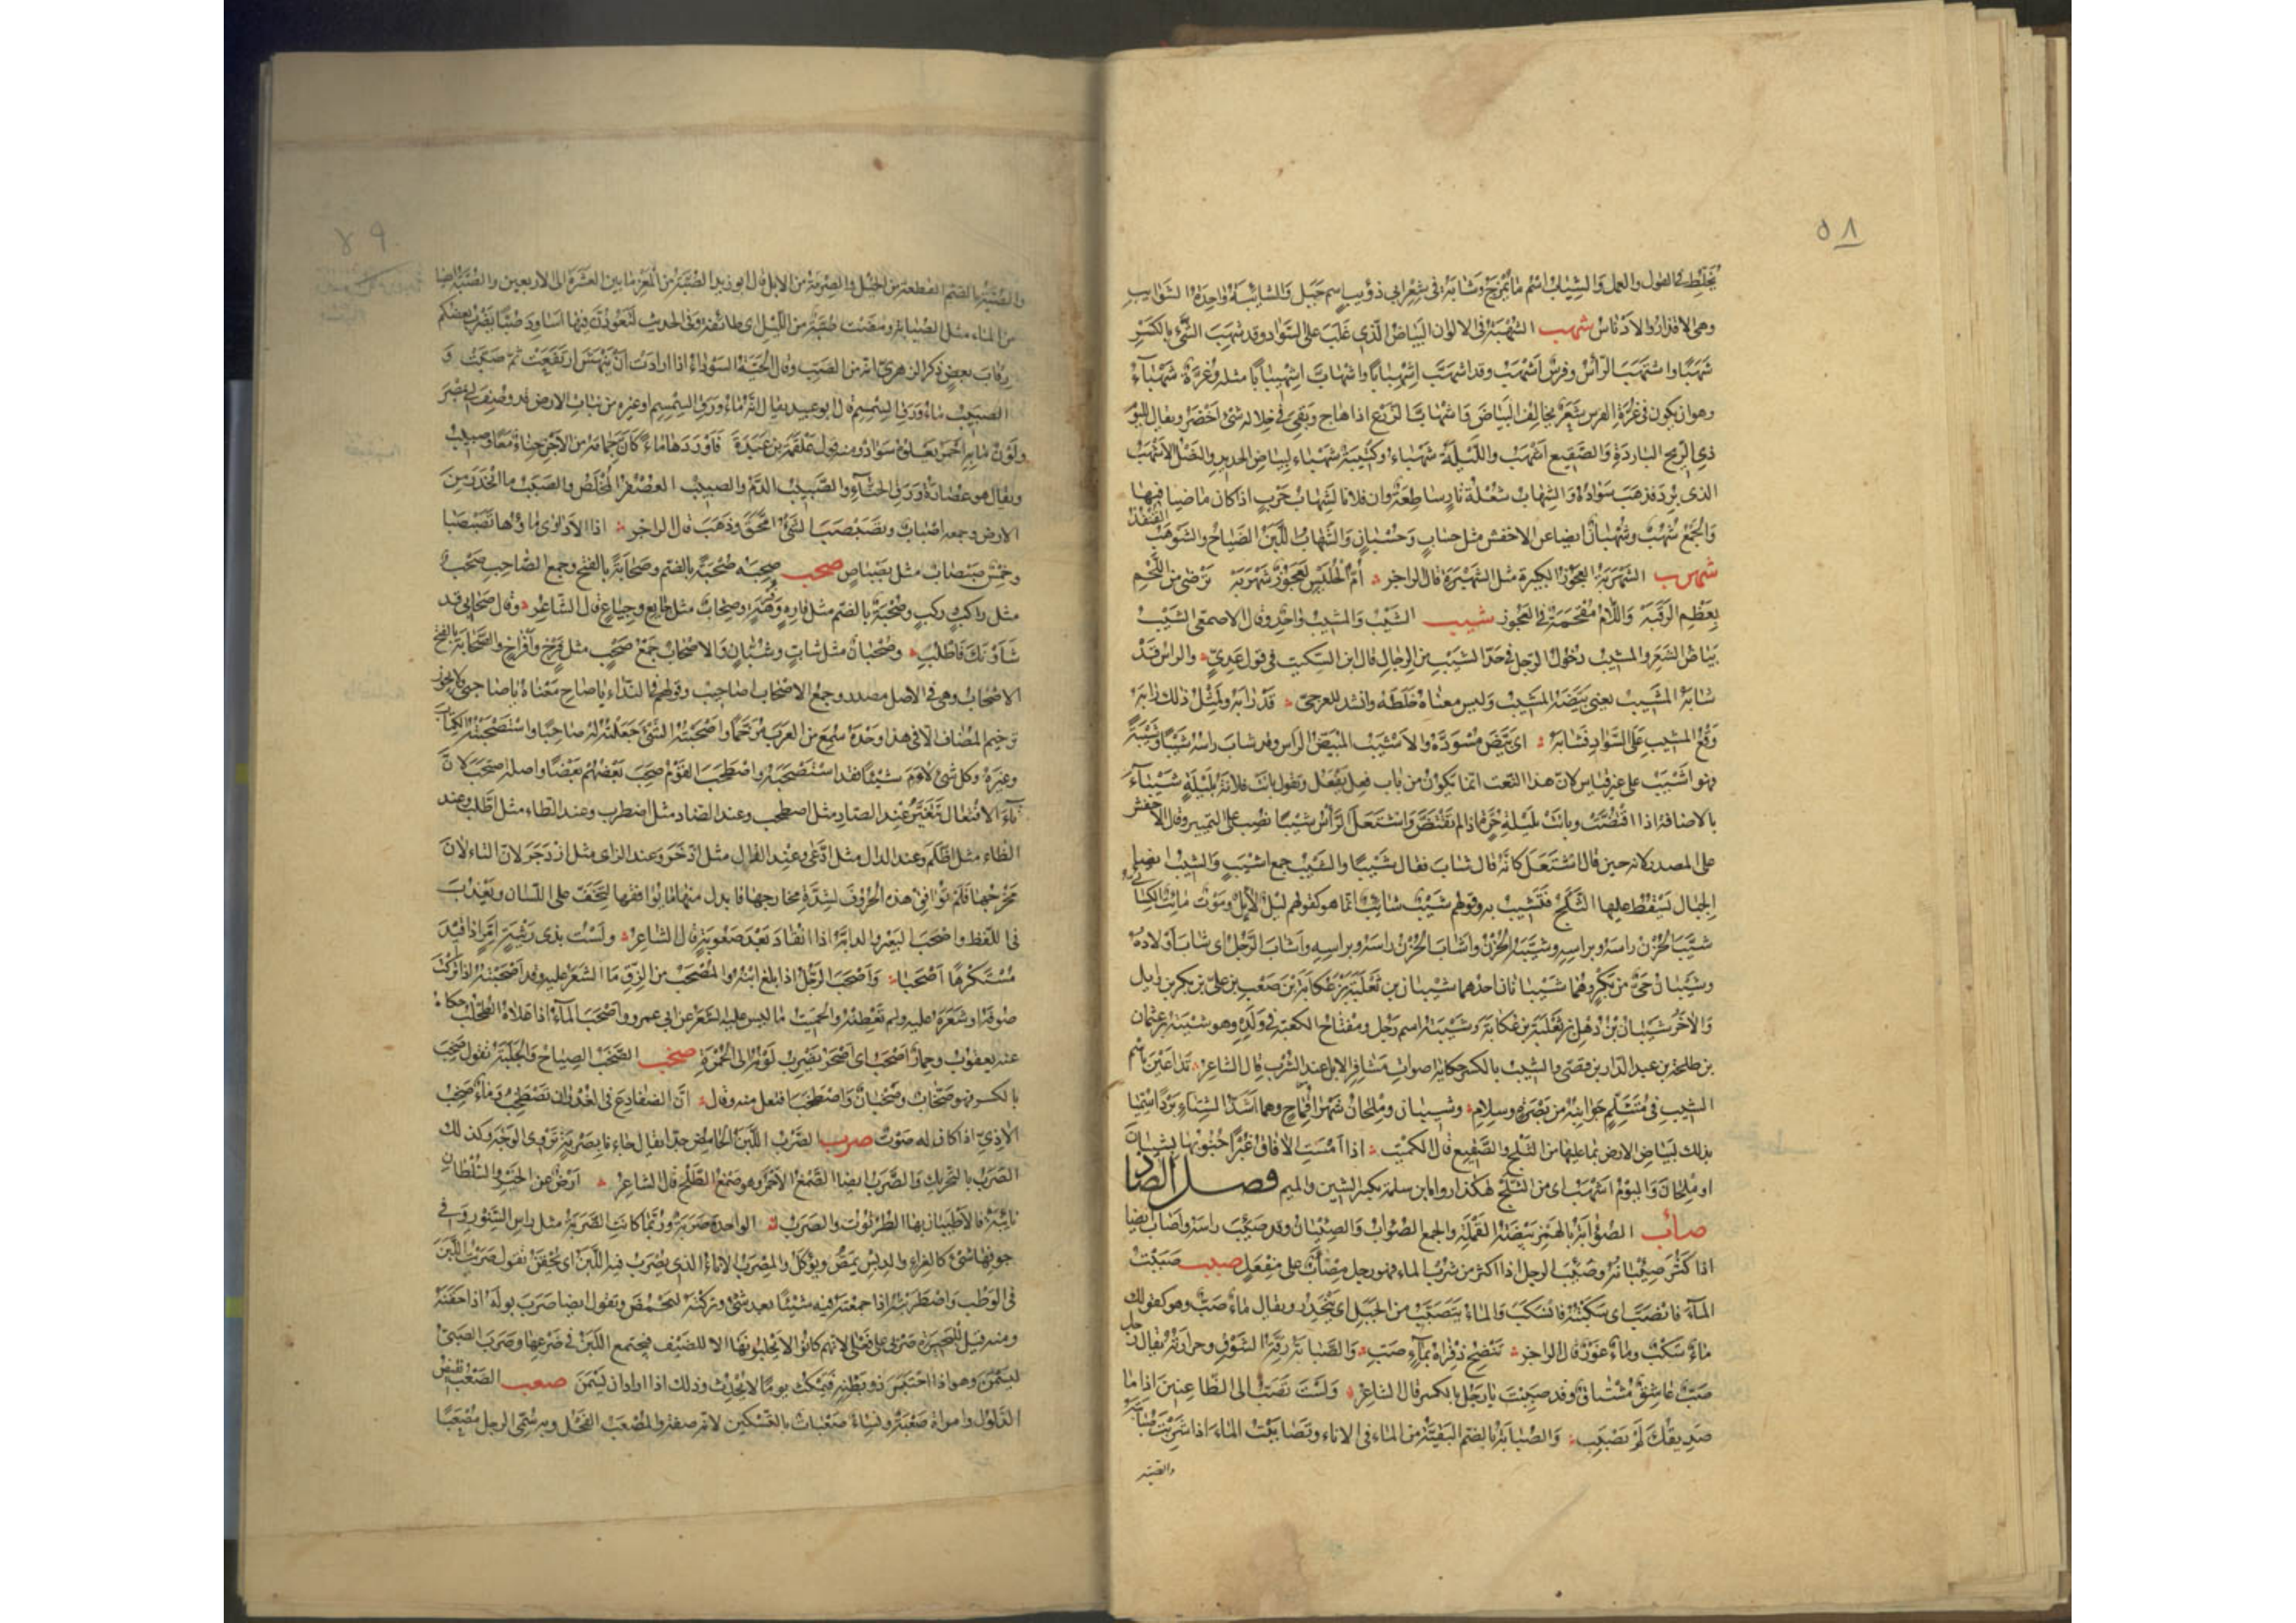 ٥٨
يخلط في القول والعمل والشياب اسم ما يمزج وشابة في شعر ابي ذؤيب اسم جبل والشائبة واحدة الشوائب
وهي الاقذار والادناس شهب الشهبة في الالوان البياض الذي غلب على السواد وقد شهب الشيء بالكسر
شهبا واشتهب الرأس وفرس اشهب وقد اشهب اشهبابا واشهاب اشهيبابا مثله وغرة شهباء
وهو ان يكون في غرة الفرس شعر يخالف البياض واشهاب الزرع اذا هاج وبقي في خلاله شيء اخضر ويقال لليوم
ذي الريح الباردة والصقيع اشهب والليلة شهباء وكتيبة شهباء لبياض الحديد والنصل الاشهب
الذي برد فذهب سواده والشهاب شعلة نار ساطعة وان فلانا لشهاب حرب اذا كان ماضيا فيها
والجمع شهب وشهبان ايضا عن الاخفش مثل حساب وحسبان والشهاب اللبن الضياح والشوهب القنفذ
شهرب الشهربة العجوز الكبيرة مثل الشهبرة قال الراجز أم الحليس لعجوز شهربه ترضى من اللحم
بعظم الرقبه واللام مقحمة في العجوز شيب الشيب والمشيب واحد وقال الاصمعي الشيب
بياض الشعر والمشيب دخول الرجل في حد الشيب من الرجال قال ابن السكيت في قول عدي والراس قد
شابه المشيب يعني بيضه المشيب وليس معناه خلطه وانشد للعرجي قد رابه ولمثل ذلك رابه
وقع المشيب على السواد فشابه اي بيض مسوده والاشيب المبيض الراس وقد شاب راسه شيبا وشيبة
فهو اشيب على غير قياس لان هذا النعت انما يكون من باب فعل يفعل وتقول باتت فلانة بليلة شيباء
بالاضافة اذا افتضت وباتت بليلة حرة اذا لم تفتض واشتعل الرأس شيبا نصب على التمييز وقال الاخفش
على المصدر لانه حين قال اشتعل كانه قال شاب فقال شيبا والشيب جمع اشيب والشيب ايضا
الجبال يسقط عليها الثلج فتشيب به وقولهم شيب شائب انما هو كقولهم ليل لائل وموت مائت الكسائي
شيب الحزن راسه وبراسه وشيبه الحزن واشاب الحزن راسه وبراسه واشاب الرجل اي شاب اولاده
وشيبان حي من بكر وهما شيبانان احدهما شيبان بن ثعلبة بن عكابة بن صعب بن علي بن بكر بن وايل
والآخر شيبان بن ذهل بن ثعلبة بن عكابة وشيبة اسم رجل ومفتاح الكعبة في ولده وهو شيبة بن عثمان
بن طلحة بن عبد الدار بن قصي والشيب بالكسر حكاية اصوات مشافر الابل عند الشرب قال الشاعر تداعين باسم
الشيب في متثلم جوانبه من بصرة وسلام وشيبان وملحان شهرا قماح وهما اشد الشتاء بردا سميا
بذلك لبياض الارض بما عليها من الثلج والصقيع قال الكميت اذا امست الافاق غبرا جنوبها بشيبان
او ملحان واليوم اشهب اي من الثلج هكذا رواه ابن سلمة بكسر الشين والميم فصل الصاد
صأب الصؤابة بالهمز بيضة القملة والجمع الصؤاب والصئبان وقد صئب راسه واصاب ايضا
اذا كثر صئبانه وصئب الرجل اذا اكثر من شرب الماء فهو رجل مصأب على مفعل صبب صببت
الماء فانصب اي سكبته فانسكب والماء يتصبب من الجبل اي يتحدر ويقال ماء صب وهو كقولك
ماء سكب وماء غور قال الراجز تنضح ذفراه بماء صب والصبابة رقة الشوق وحرارته يقال رجل
صب عاشق مشتاق وقد صببت يا رجل بالكسر قال الشاعر ولست تصب الى الظاعنين اذا ما
صديقك لم يصبب والصبابة بالضم البقية من الماء في الاناء وتصاببت الماء اذا شربت صبابته
والصبة
٥٩
والصبة بالضم القطعة من الخيل والصرمة من الابل قال ابو زيد الصبة من المعز ما بين العشرة الى الاربعين والصبة ايضا
من الماء مثل الصبابة ومضت صبة من الليل اي طائفة وفي الحديث لتعودن فيها اساود صبا يضرب بعضكم
رقاب بعض ذكر الزهري انه من الصب وقال الحية السوداء اذا ارادت أن ينهش ارتفعت ثم صبت و
الصبيب ماء ورق السمسم قال ابو عبيد يقال انه ماء ورق السمسم او غيره من نبات الارض قد وصف لي بمصر
ولون مائه احمر يعلوه سواد ومنه قول علقمة بن عبدة فاوردها ماء كان جمامه من الاجن حناء معا وصبيب
ويقال هو عصارة ورق الحناء والصبيب الدم والصبيب العصفر المخلص والصبب ما انحدر من
الارض وجمعه اصباب وتصبصب الشيء امحق وذهب قال الراجز اذا الاداوى ماؤها تصبصبا
وخمس صبصاب مثل بصباص صحب صحبه صحبة بالضم وصحابة بالفتح وجمع الصاحب صحب
مثل راكب وركب وصحبة بالضم مثل فاره وفرهة وصحاب مثل جايع وجياع قال الشاعر وقال صحابي قد
شأونك فاطلب وصحبان مثل شاب وشبان والاصحاب جمع صحب مثل فرخ وافراخ والصحابة بالفتح
الاصحاب وهي في الاصل مصدر وجمع الاصحاب اصاحيب وقولهم في النداء يا صاح معناه يا صاحبي ولا يجوز
ترخيم المضاف الا في هذا وحده سمع من العرب مرخما واصحبته الشيء جعلته له صاحبا واستصحبته الكتاب
وغيره وكل شيء لاءم شيئا فقد استصحبه واصطحب القوم صحب بعضهم بعضا واصله اصتحب لان
تاء الافتعال تتغير عند الصاد مثل اصطحب وعند الضاد مثل اضطرب وعند الطاء مثل اطلب وعند
الظاء مثل اظلم وعند الدال مثل ادعى وعند الذال مثل اذخر وعند الزاى مثل ازدجر لان التاء لان
مخرجها فلم توافق هذه الحروف لشدة مخارجها فابدل منها ما يوافقها لتخف على اللسان ويعذب
في اللفظ واصحب البعير والدابة اذا انقاد بعد صعوبة قال الشاعر ولست بذي رثية امر اذا قيد
مستكرها اصحبا واصحب الرجل اذا بلغ ابنه والمصحب من الزق ما الشعر عليه وقد اصحبته اذا تركت
صوفه او شعره عليه ولم تعطنه والحميت ما ليس عليه الشعر عن ابي عمرو واصحب الماء اذا علاه الطحلب حكاه
عنه يعقوب وحمار اصحب اي اصحر يضرب لونه الى الحمرة صخب الصخب الصياح والجلبة تقول صخب
بالكسر فهو صخاب وصخبان واصطخب افتعل منه وقال ان الضفادع في الغدران تصطخب وماء صخب
الآذي اذا كان له صوت صرب الصرب اللبن الحامض جدا يقال جاء بصربة تزوي الوجه وكذلك
الصرب بالتحريك والصرب ايضا الصمغ الاحمر وهو صمغ الطلح قال الشاعر ارض عن الخير والسلطان
نائية فالاطيبان بها الطرثوث والصرب الواحدة صربة وربما كانت الصربة مثل راس السنور وفي
جوفها شيء كالغراء والدبس يمص ويؤكل والمصرب الاناء الذي يصرب فيه اللبن اي يحقن تقول صربت اللبن
في الوطب واصطربته اذا جمعته فيه شيئا بعد شيء وتركته ليحمض وتقول ايضا صرب بوله اذا حقنه
ومنه قيل للبحيرة صربى على فعلى لانهم كانوا لا يحلبونها الا للضيف فيجتمع اللبن في ضرعها وصرب الصبي
ليسمن وهو اذا احتبس ذو بطنه فيمكث يوما لا يحدث وذلك اذا اراد ان يسمن صعب الصعب نقيض
الذلول وامراة صعبة ونساء صعبات بالتسكين لانه صفة والمصعب الفحل وبه سمي الرجل مصعبا